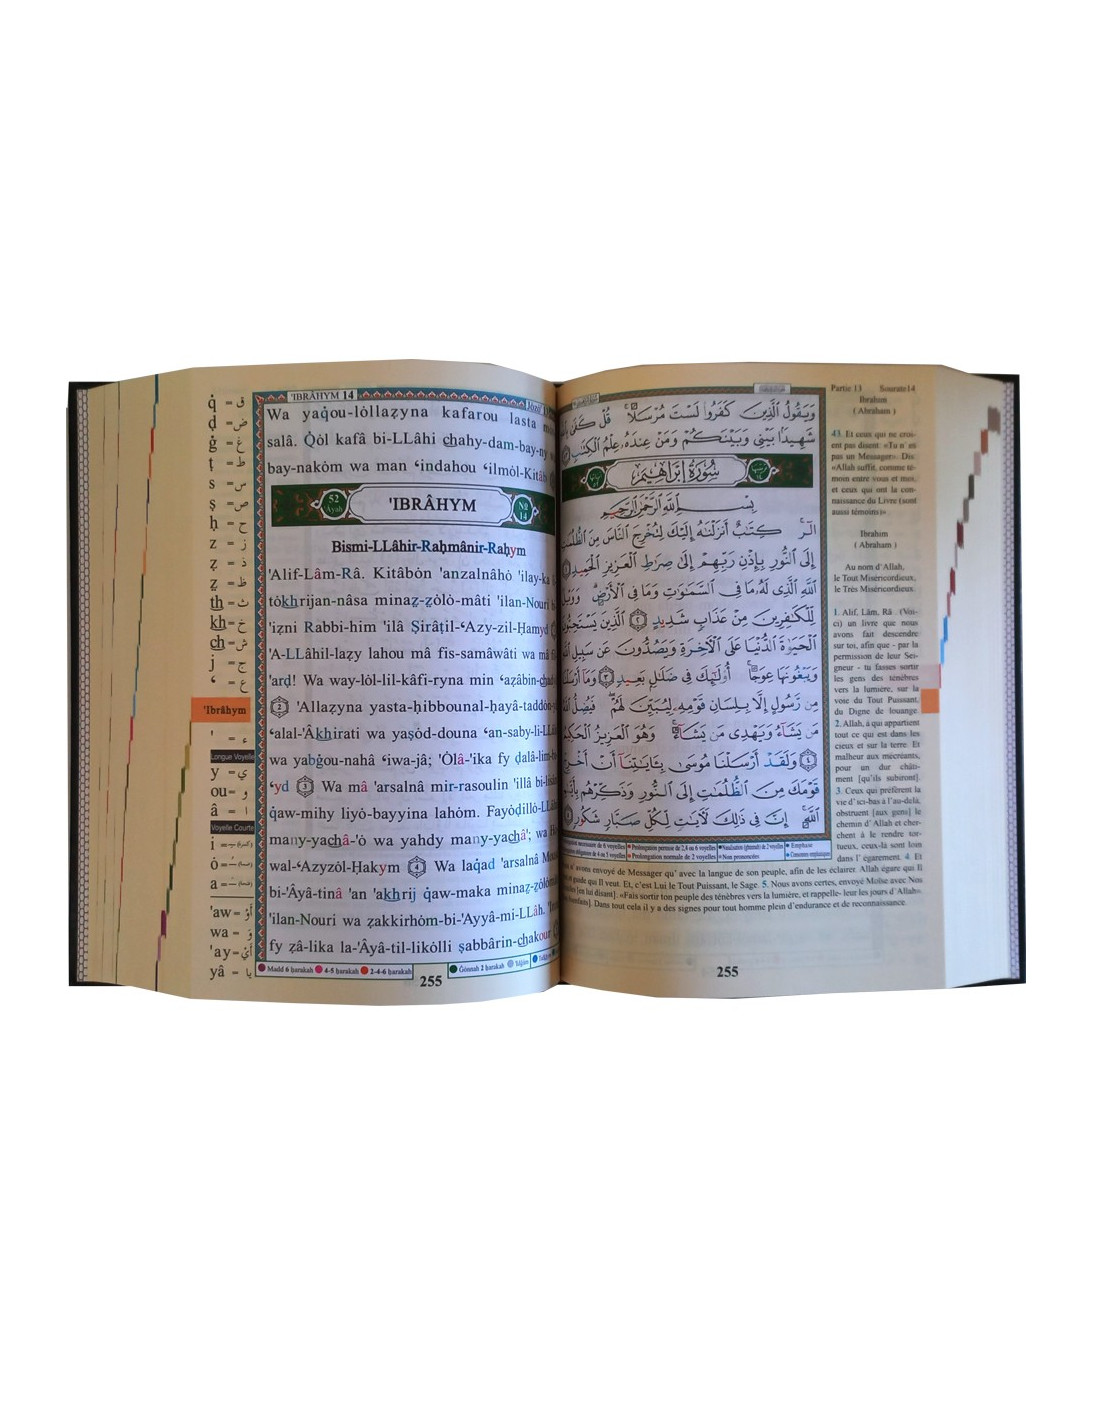 q̇ = ق
ḍ = ض
ġ = غ
ṭ = ط
s = س
ṣ = ص
ḥ = ح
z = ز
ẓ = ذ
ẓ = ظ
th = ث
kh = خ
ch = ش
j = ج
‘ = ع
'Ibrâhym
' = ء
Longue Voyelle
y = ي
ou = و
â = ا
Voyelle Courte
i =
ȯ =
a =
'aw = أَوْ
wa = وَ
'ay = أَيْ
yâ = يا
'IBRÂHYM 14
Wa yaq̇ou-lòllaẓyna kafarou lasta
salâ. Q̇òl kafâ bi-LLâhi chahy-dam-bay-ny
bay-nakòm wa man ‘indahou ‘ilmòl-Kitâb
52 Âyah 'IBRÂHYM № 14
Bismi-LLâhir-Raḥmânir-Raḥym
'Alif-Lâm-Râ. Kitâbòn 'anzalnâhò 'ilay-ka
tòkhrijan-nâsa minaẓ-ẓòlò-mâti 'ilan-Nouri
'iẓni Rabbi-him 'ilâ Ṣirâṭil-‘Azy-zil-Ḥamyd
'A-LLâhil-laẓy lahou mâ fis-samâwâti wa mâ
'arḍ! Wa way-lòl-lil-kâfi-ryna min ‘aẓâbin-chad
2 'Allaẓyna yasta-ḥibbounal-ḥayâ-taddòn-
‘alal-'Âkhirati wa yaṣòd-douna ‘an-saby-li-LLâ
wa yabġou-nahâ ‘iwa-jâ; 'Òlâ-'ika fy ḍalâ-lim-
‘yd 3 Wa mâ 'arsalnâ mir-rasoulin 'illâ bi-lisân
q̇aw-mihy liyò-bayyina lahòm. Fayòḍillò-LLâh
many-yachâ-'ò wa yahdy many-yachâ'; wa
wal-‘Azyzòl-Ḥakym 4 Wa laq̇ad 'arsalnâ
bi-'Âyâ-tinâ 'an 'akhrij q̇aw-maka minaẓ-ẓòlòmâ
'ilan-Nouri wa ẓakkirhòm-bi-'Ayyâ-mi-LLâh.
fy ẓâ-lika la-'Âyâ-til-likòlli ṣabbârin-chakour
Madd 6 ḥarakah 4-5 ḥarakah 2-4-6 ḥarakah Ġònnah 2 ḥarakah
255
وَيَقُولُ ٱلَّذِينَ كَفَرُوا۟ لَسْتَ مُرْسَلًا ۚ قُلْ كَفَىٰ
شَهِيدًۢا بَيْنِى وَبَيْنَكُمْ وَمَنْ عِندَهُۥ عِلْمُ ٱلْكِتَٰبِ
سُورَةُ إِبْرَاهِيمَ
بِسْمِ ٱللَّهِ ٱلرَّحْمَٰنِ ٱلرَّحِيمِ
الٓر ۚ كِتَٰبٌ أَنزَلْنَٰهُ إِلَيْكَ لِتُخْرِجَ ٱلنَّاسَ مِنَ ٱلظُّلُمَٰتِ
إِلَى ٱلنُّورِ بِإِذْنِ رَبِّهِمْ إِلَىٰ صِرَٰطِ ٱلْعَزِيزِ ٱلْحَمِيدِ ١
ٱللَّهِ ٱلَّذِى لَهُۥ مَا فِى ٱلسَّمَٰوَٰتِ وَمَا فِى ٱلْأَرْضِ ۗ وَوَيْلٌ
لِّلْكَٰفِرِينَ مِنْ عَذَابٍ شَدِيدٍ ٢ ٱلَّذِينَ يَسْتَحِبُّونَ
ٱلْحَيَوٰةَ ٱلدُّنْيَا عَلَى ٱلْءَاخِرَةِ وَيَصُدُّونَ عَن سَبِيلِ ٱللَّهِ
وَيَبْغُونَهَا عِوَجًا ۚ أُو۟لَٰٓئِكَ فِى ضَلَٰلٍۭ بَعِيدٍ ٣ وَمَآ أَرْسَلْنَا
مِن رَّسُولٍ إِلَّا بِلِسَانِ قَوْمِهِۦ لِيُبَيِّنَ لَهُمْ ۖ فَيُضِلُّ ٱللَّهُ
مَن يَشَآءُ وَيَهْدِى مَن يَشَآءُ ۚ وَهُوَ ٱلْعَزِيزُ ٱلْحَكِيمُ
٤ وَلَقَدْ أَرْسَلْنَا مُوسَىٰ بِـَٔايَٰتِنَآ أَنْ أَخْرِجْ
قَوْمَكَ مِنَ ٱلظُّلُمَٰتِ إِلَى ٱلنُّورِ وَذَكِّرْهُم بِأَيَّىٰمِ
ٱللَّهِ ۚ إِنَّ فِى ذَٰلِكَ لَءَايَٰتٍ لِّكُلِّ صَبَّارٍ شَكُورٍ ٥
Prolongation permise de 2,4 ou 6 voyelles Nasalisation (ghunnah) de 2 voyelles Emphase
Prolongation normale de 2 voyelles Non prononcées Consonne emphatique
Partie 13 Sourate14
Ibrahim
( Abraham )
43. Et ceux qui ne croi-
ent pas disent: «Tu n' es
pas un Messager». Dis:
«Allah suffit, comme té-
moin entre vous et moi,
et ceux qui ont la con-
naissance du Livre (sont
aussi témoins)».
Ibrahim
( Abraham )
Au nom d'Allah,
le Tout Miséricordieux,
le Très Miséricordieux.
1. Alif, Lâm, Râ . (Voi-
ci) un livre que nous
avons fait descendre
sur toi, afin que - par la
permission de leur Sei-
gneur - tu fasses sortir
les gens des ténèbres
vers la lumière, sur la
voie du Tout Puissant,
du Digne de louange.
2. Allah, à qui appartient
tout ce qui est dans les
cieux et sur la terre. Et
malheur aux mécréants,
pour un dur châti-
ment [qu'ils subiront].
3. Ceux qui préfèrent la
vie d' ici-bas à l'au-delà,
obstruent [aux gens] le
chemin d' Allah et cher-
chent à le rendre tor-
tueux, ceux-là sont loin
dans l' égarement. 4. Et
n' avons envoyé de Messager qu' avec la langue de son peuple, afin de les éclairer. Allah égare qui Il
et guide qui Il veut. Et, c'est Lui le Tout Puissant, le Sage. 5. Nous avons certes, envoyé Moïse avec Nos
[en lui disant]. «Fais sortir ton peuple des ténèbres vers la lumière, et rappelle- leur les jours d' Allah».
Dans tout cela il y a des signes pour tout homme plein d'endurance et de reconnaissance.
255